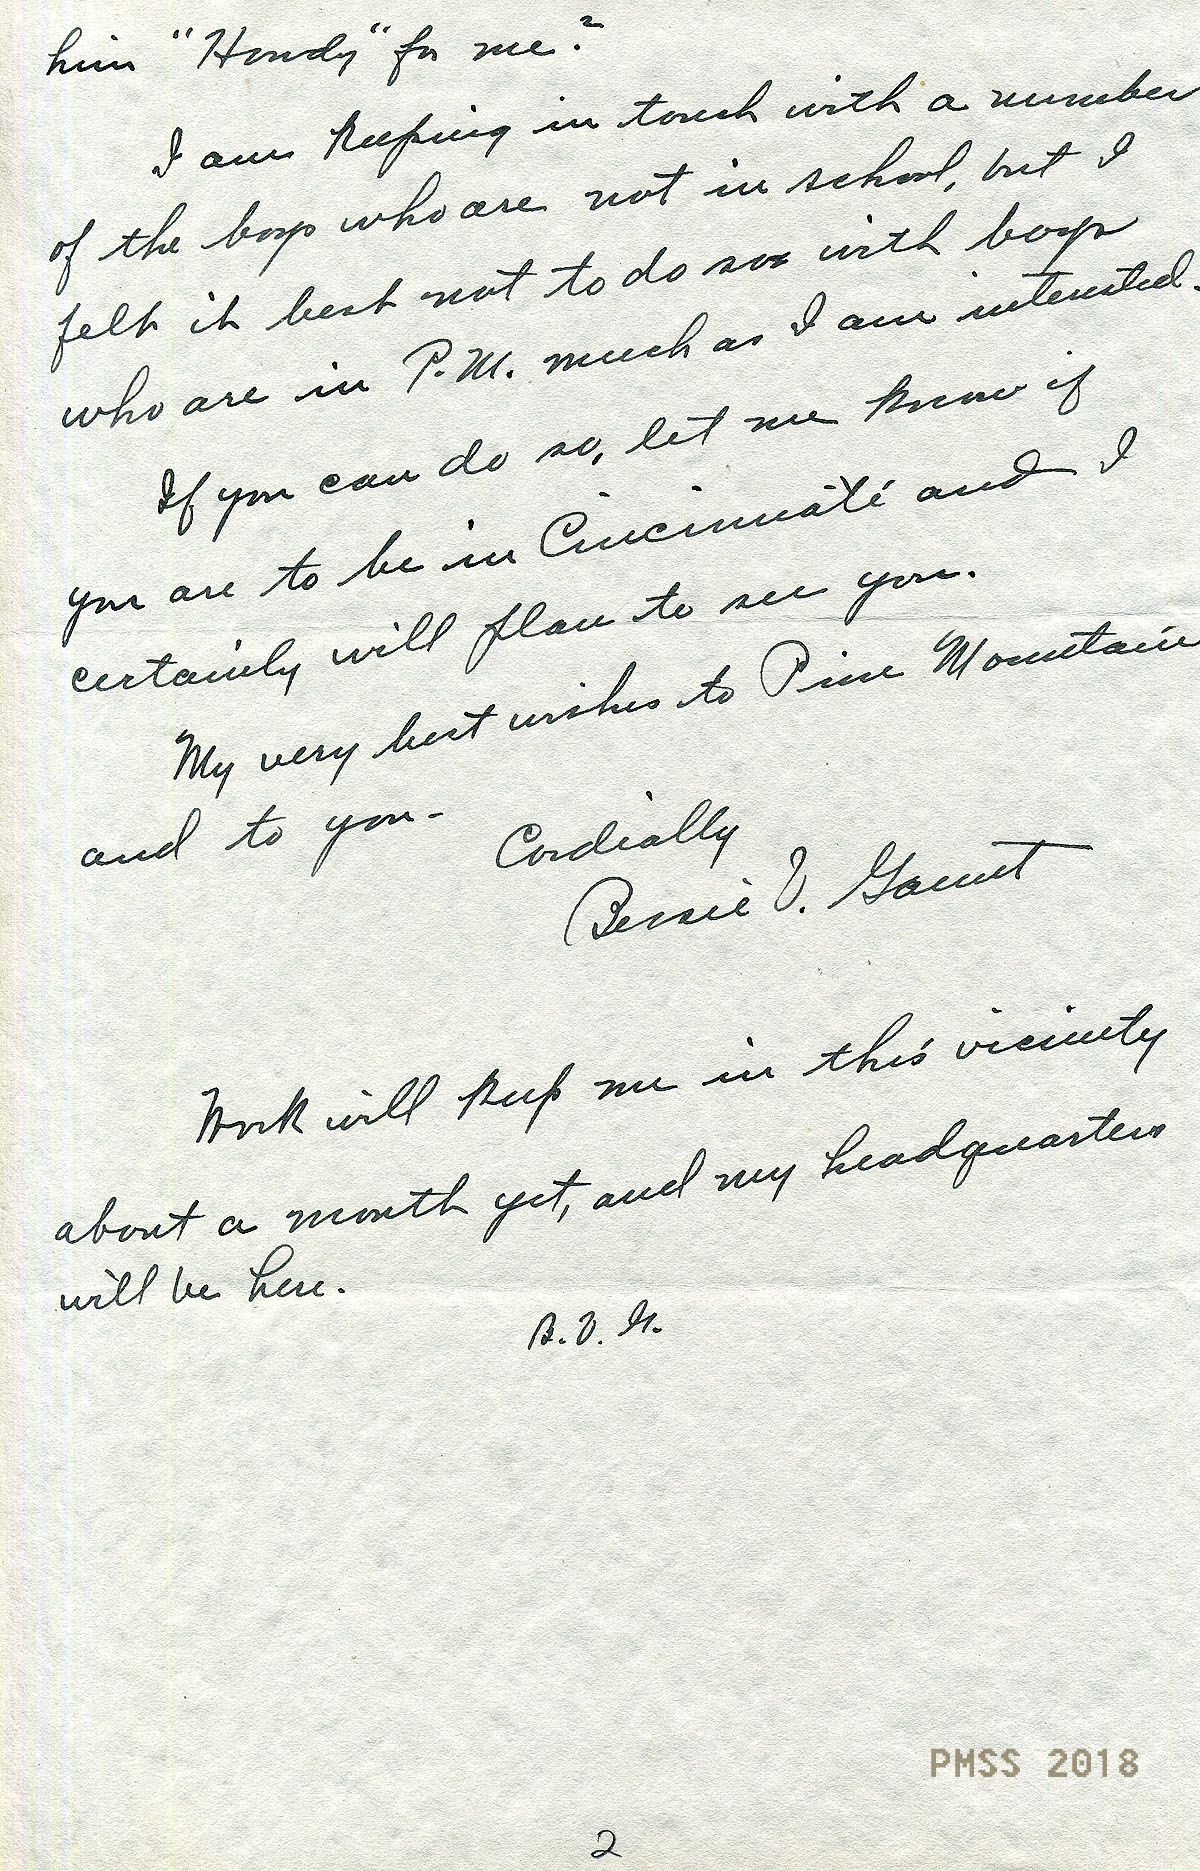 him "Howdy" for me?
I am keeping in touch with a number
of the boys who are not in school, but I
felt it best not to do so with boys
who are in P.M. much as I am interested.
If you can do so, let me know if
you are to be in Cincinnati and I
certainly will plan to see you.
My very best wishes to Pine Mountain
and to you-
Cordially
Bessie V. Gaunt
Work will keep me in this vicinity
about a month yet, and my headquarters
will be here.
B. V. G.
PMSS 2018
2